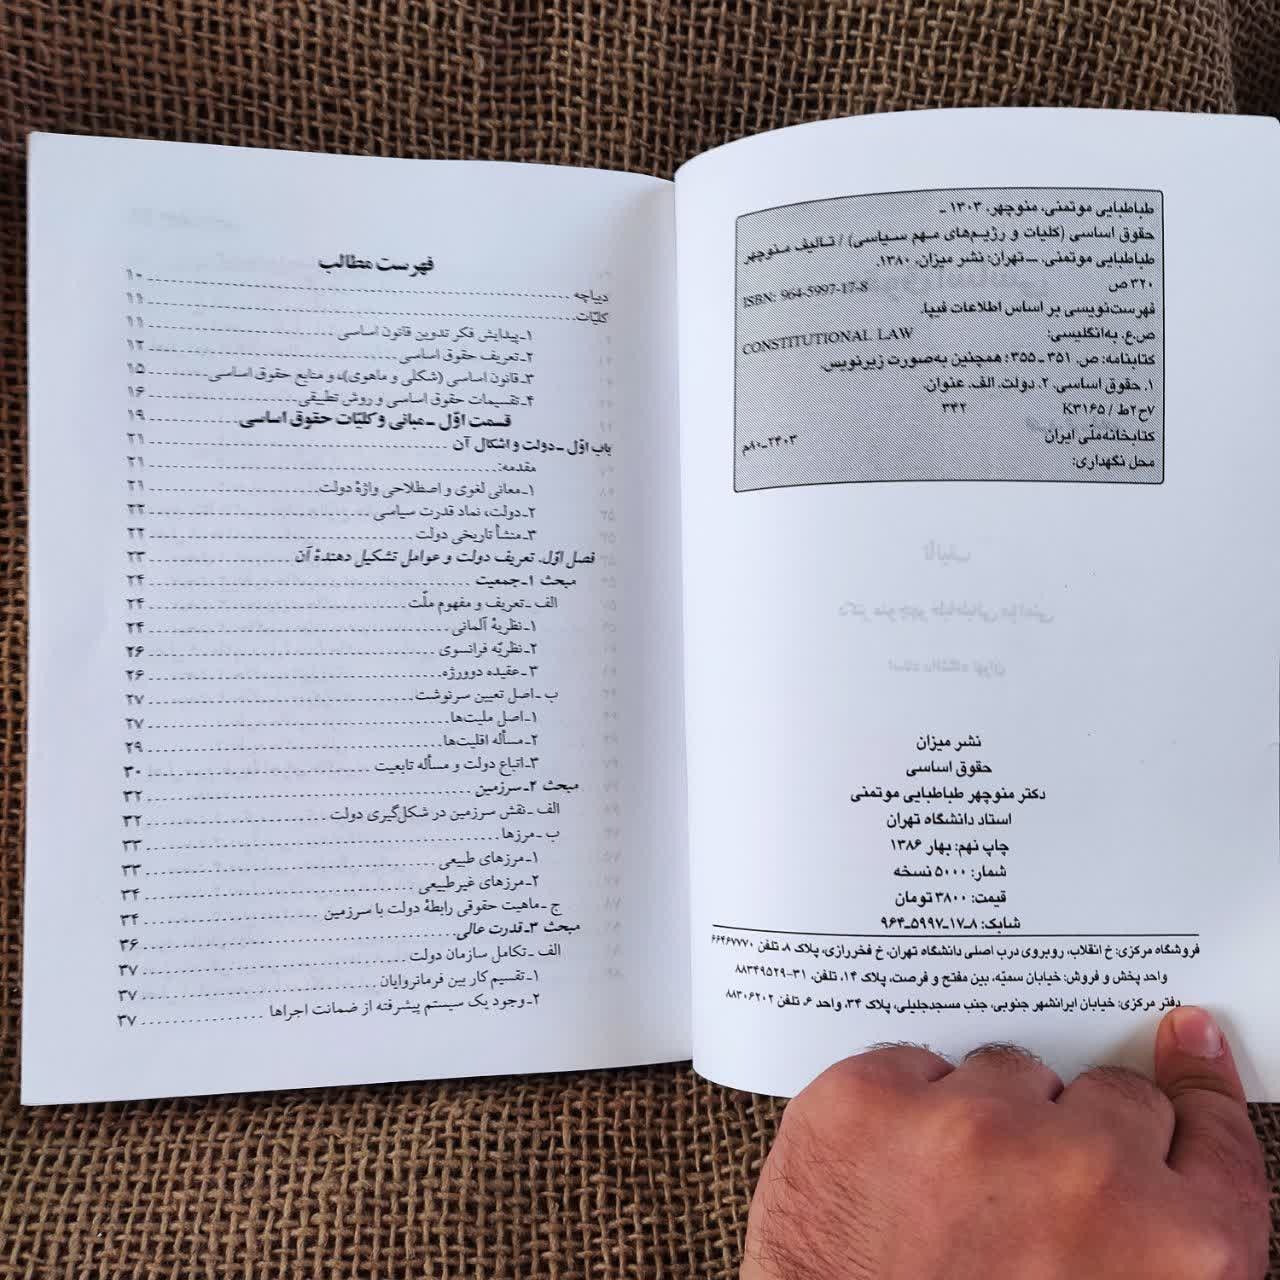 طباطبایی موتمنی، منوچهر، ۱۳۰۳ ـ
حقوق اساسی (کلیات و رژیم‌های مهم سیاسی) / تالیف منوچهر
طباطبایی موتمنی. ـ تهران: نشر میزان، ۱۳۸۰.
۳۲۰ ص
ISBN: 964-5997-17-8
فهرست‌نویسی بر اساس اطلاعات فیپا.
ص.ع. به‌انگلیسی: CONSTITUTIONAL LAW
کتابنامه: ص. ۳۵۱ ـ ۳۵۵؛ همچنین به‌صورت زیرنویس.
۱. حقوق اساسی. ۲. دولت. الف. عنوان.
۷ح۲ط / K۳۱۶۵ ۳۴۲
کتابخانه‌ملّی ایران ۲۴۰۳ـ۸۰م
محل نگهداری:
نشر میزان
حقوق اساسی
دکتر منوچهر طباطبایی موتمنی
استاد دانشگاه تهران
چاپ نهم: بهار ۱۳۸۶
شمار: ۵۰۰۰ نسخه
قیمت: ۳۸۰۰ تومان
شابک: ۸ـ۱۷ـ۵۹۹۷ـ۹۶۴
فروشگاه مرکزی: خ انقلاب، روبروی درب اصلی دانشگاه تهران، خ فخررازی، پلاک ۸ـ تلفن ۶۶۴۶۷۷۷۰
واحد پخش و فروش: خیابان سمیّه، بین مفتح و فرصت، پلاک ۱۴، تلفن، ۳۱-۸۸۳۴۹۵۲۹
دفتر مرکزی: خیابان ایرانشهر جنوبی، جنب مسجدجلیلی، پلاک ۳۴، واحد ۶، تلفن ۸۸۳۰۶۲۰۲
فهرست مطالب
دیباچه ۱۰
کلیّات ۱۱
۱ـ پیدایش فکر تدوین قانون اساسی ۱۱
۲ـ تعریف حقوق اساسی ۱۲
۳ـ قانون اساسی (شکلی و ماهوی)، و منابع حقوق اساسی ۱۵
۴ـ تقسیمات حقوق اساسی و روش تطبیقی ۱۶
قسمت اوّل ـ مبانی و کلیّات حقوق اساسی ۱۹
باب اوّل ـ دولت و اشکال آن ۲۱
مقدمه: ۲۱
۱ـ معانی لغوی و اصطلاحی واژهٔ دولت ۲۱
۲ـ دولت، نماد قدرت سیاسی ۲۲
۳ـ منشأ تاریخی دولت ۲۲
فصل اوّل. تعریف دولت و عوامل تشکیل دهندهٔ آن ۲۳
مبحث ۱ـ جمعیت ۲۴
الف ـ تعریف و مفهوم ملّت ۲۴
۱ـ نظریهٔ آلمانی ۲۴
۲ـ نظریّه فرانسوی ۲۶
۳ـ عقیده دوورژه ۲۶
ب ـ اصل تعیین سرنوشت ۲۷
۱ـ اصل ملیت‌ها ۲۷
۲ـ مسأله اقلیت‌ها ۲۹
۳ـ اتباع دولت و مسأله تابعیت ۳۰
مبحث ۲ـ سرزمین ۳۲
الف ـ نقش سرزمین در شکل‌گیری دولت ۳۲
ب ـ مرزها ۳۳
۱ـ مرزهای طبیعی ۳۳
۲ـ مرزهای غیرطبیعی ۳۴
ج ـ ماهیت حقوقی رابطهٔ دولت با سرزمین ۳۴
مبحث ۳ـ قدرت عالی ۳۶
الف ـ تکامل سازمان دولت ۳۷
۱ـ تقسیم کار بین فرمانروایان ۳۷
۲ـ وجود یک سیستم پیشرفته از ضمانت اجراها ۳۷